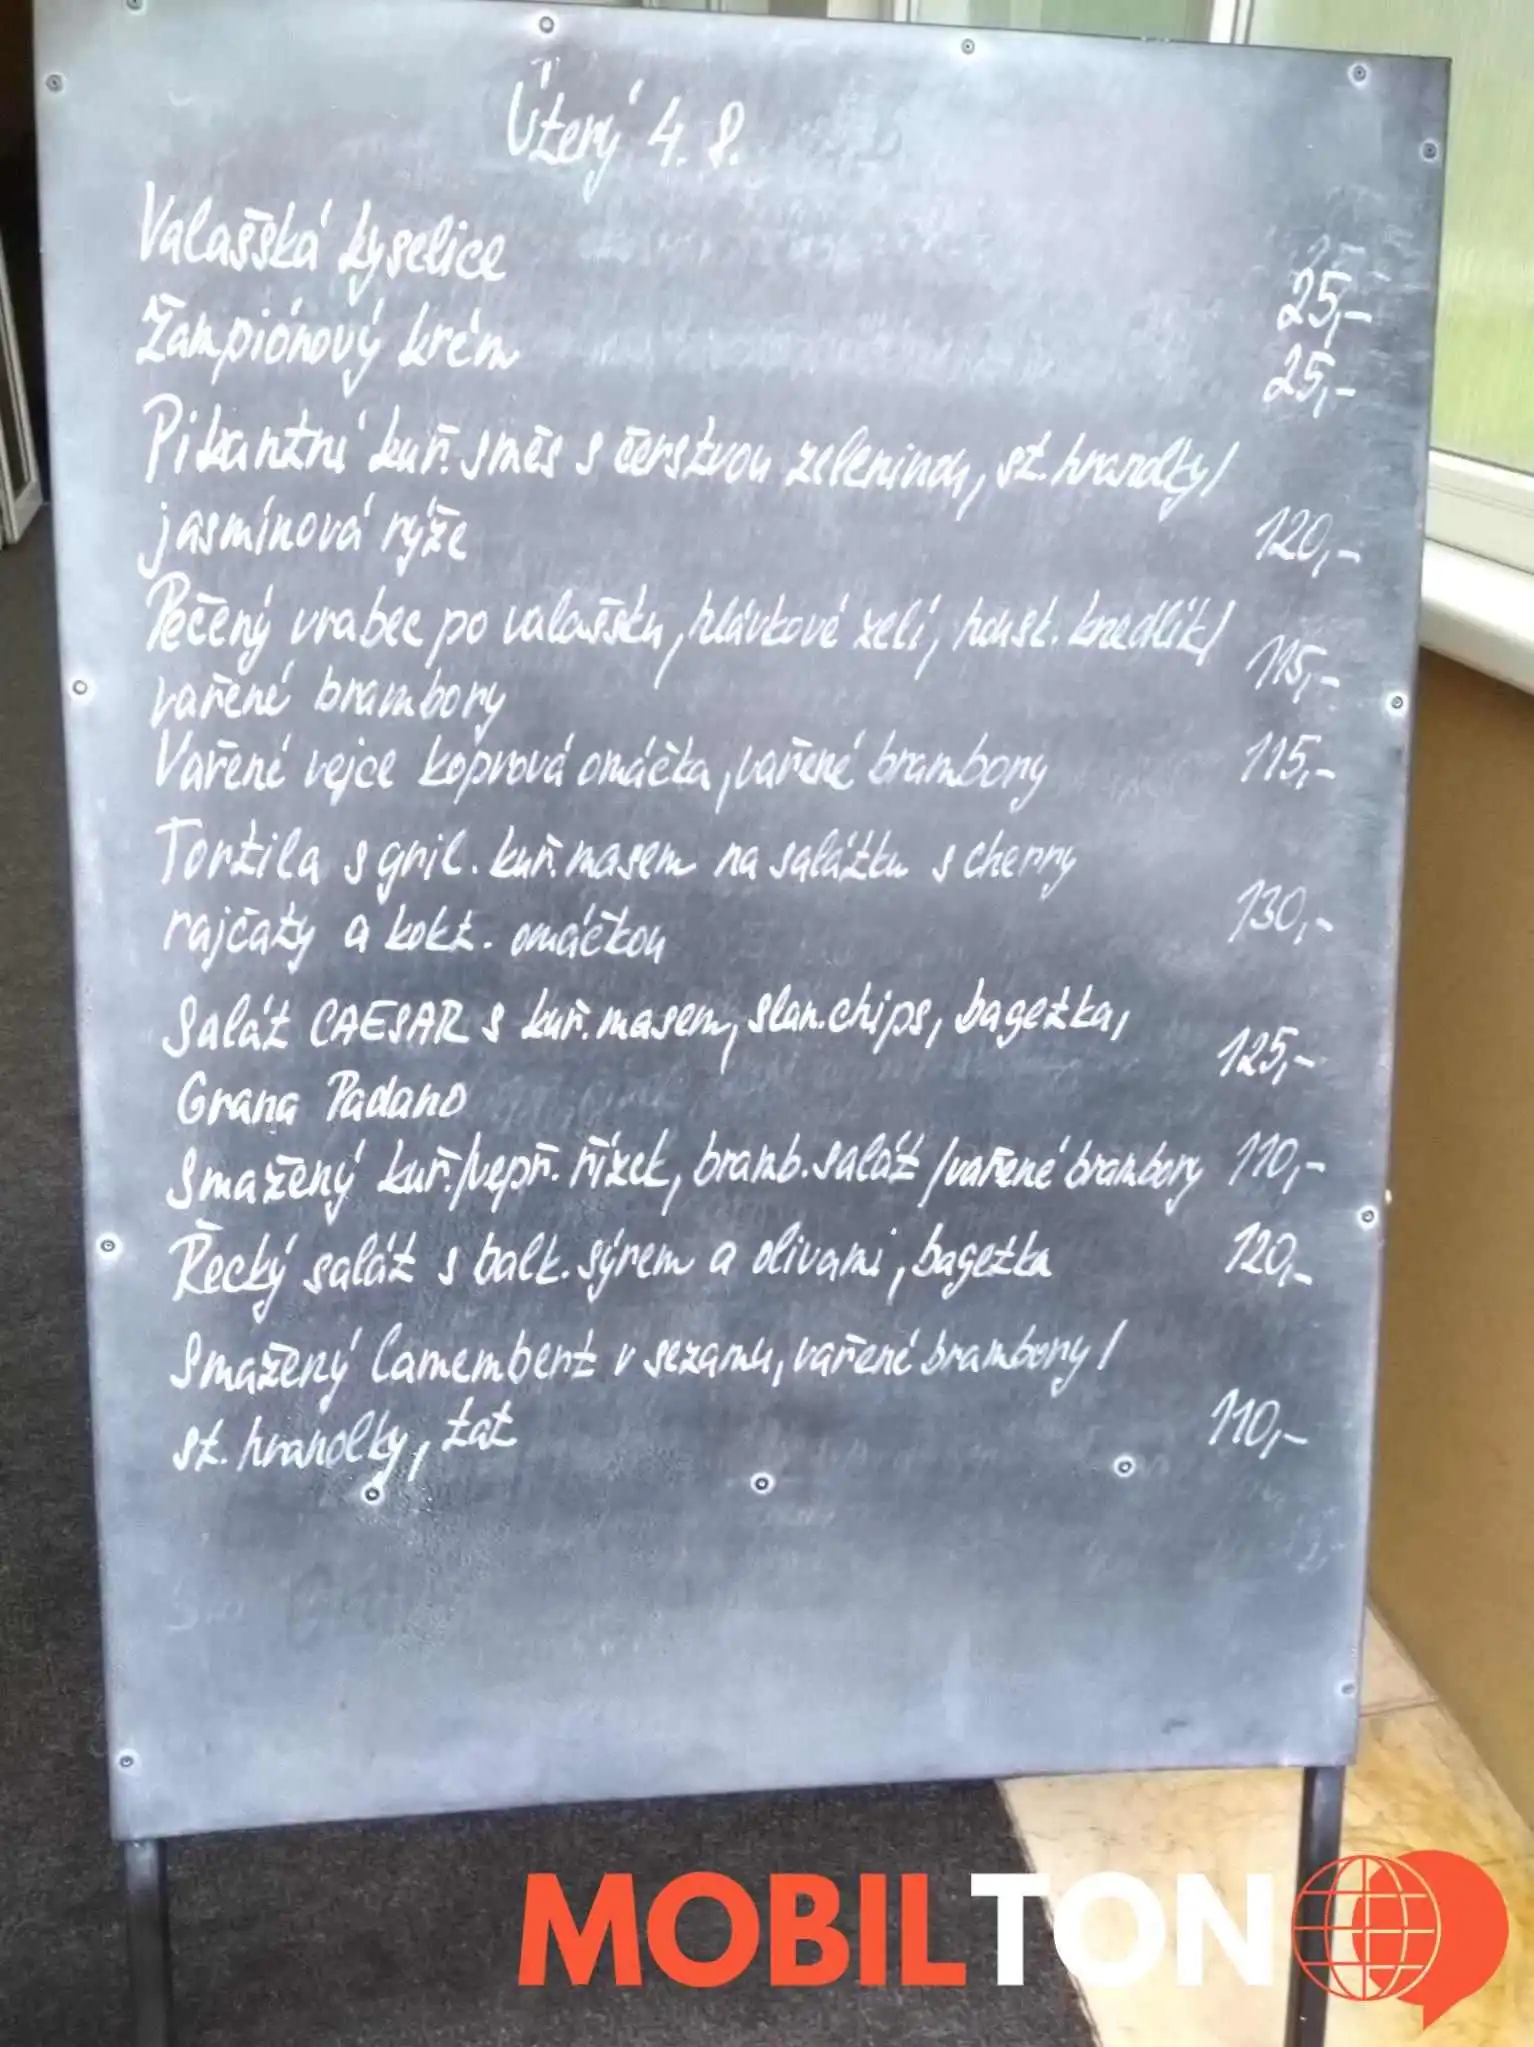 Úterý 4. 8.
Valašská kyselice 25,-
Žampiónový krém 25,-
Pikantní kuř. směs s čerstvou zeleninou, st. hranolky/
jasmínová rýže 120,-
Pečený vrabec po valašsku, hlávkové zelí, housk. knedlík/ 115,-
vařené brambory
Vařené vejce koprová omáčka, vařené brambory 115,-
Tortila s gril. kuř. masem na salátku s cherry
rajčaty a kokt. omáčkou 130,-
Salát CAESAR s kuř. masem, slan. chips, bagetka, 125,-
Grana Padano
Smažený kuř./vepř. řízek, bramb. salát /vařené brambory 110,-
Řecký salát s balk. sýrem a olivami, bagetka 120,-
Smažený Camembert v sezamu, vařené brambory/
st. hranolky, tat 110,-
MOBILTON